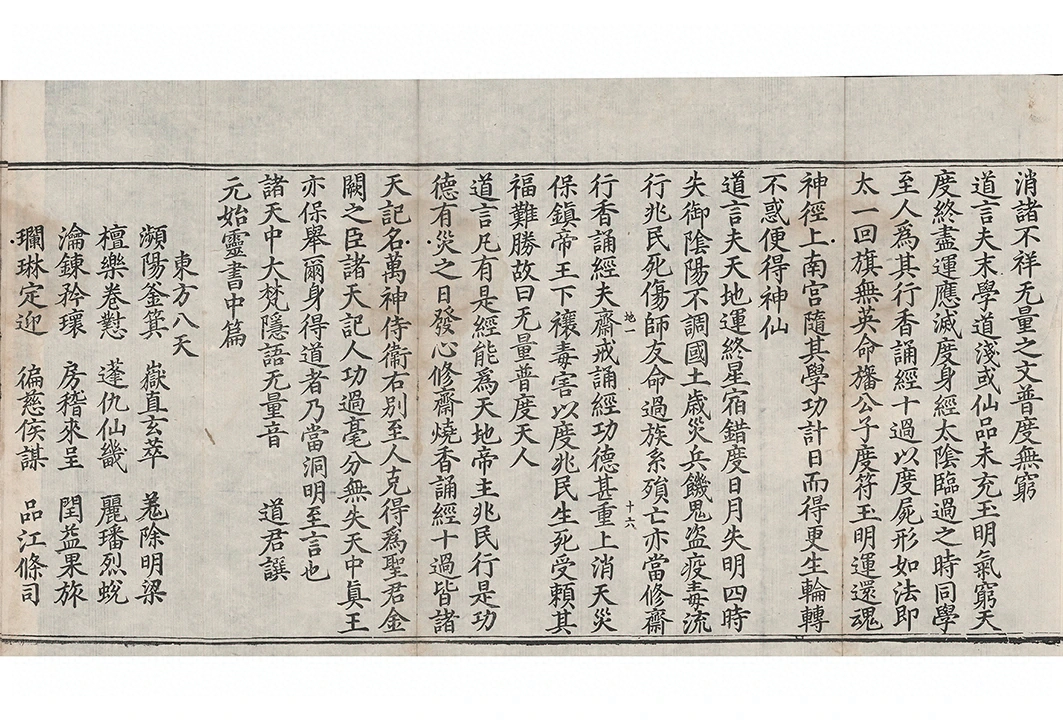 消諸不祥无量之文普度無窮
道言夫末學道淺或仙品未充玉明氣窮天
度終盡運應滅度身經太陰臨過之時同學
至人爲其行香誦經十過以度屍形如法即
太一回旗無英命旛公子度符玉明運還魂
神徑上南宮隨其學功計日而得更生輪轉
不惑便得神仙
道言夫天地運終星宿錯度日月失明四時
失御陰陽不調國土歲災兵饑鬼盜疫毒流
行兆民死傷師友命過族系殞亡亦當修齋
地一 十六
行香誦經夫齋戒誦經功德甚重上消天災
保鎮帝王下禳毒害以度兆民生死受賴其
福難勝故曰无量普度天人
道言凡有是經能爲天地帝主兆民行是功
德有災之日發心修齋燒香誦經十過皆諸
天記名萬神侍衞右別至人克得爲聖君金
闕之臣諸天記人功過毫分無失天中眞王
亦保舉爾身得道者乃當洞明至言也
諸天中大梵隱語无量音 道君譔
元始靈書中篇
東方八天
瀕陽釜箕 嶽直玄萃 除明梁
檀樂卷懟 蓬仇仙畿 麗璠烈蛻
瀹鍊矜瓖 房稽來呈 閏益果旅
瓓琳定迎 徧慈俟謀 品江條司